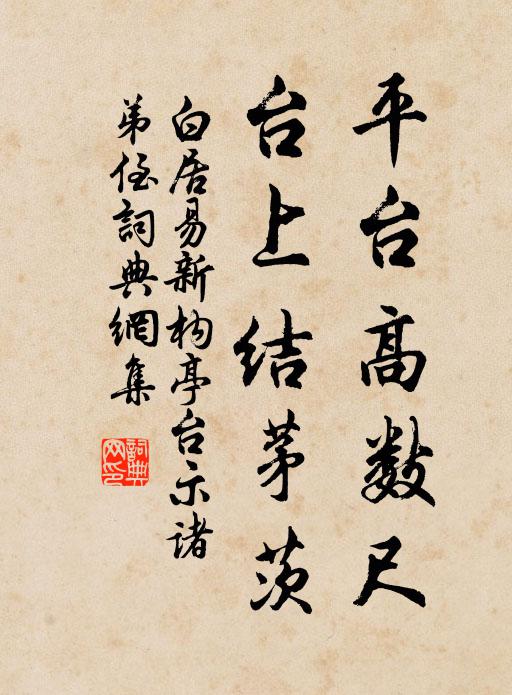 平台高数尺
台上结茅茨
白居易新构亭台示诸
弟侄詞典網集
詞典网印